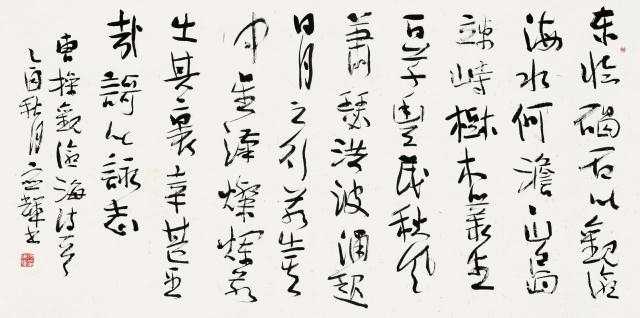 東臨碣石以觀滄
海水何澹澹山島
竦峙樹木叢生
百草豐茂秋風
蕭瑟洪波湧起
日月之行若出其
中星漢燦爛若
出其裏幸甚至
哉歌以詠志
曹操觀滄海詩一首
乙酉秋月輝書